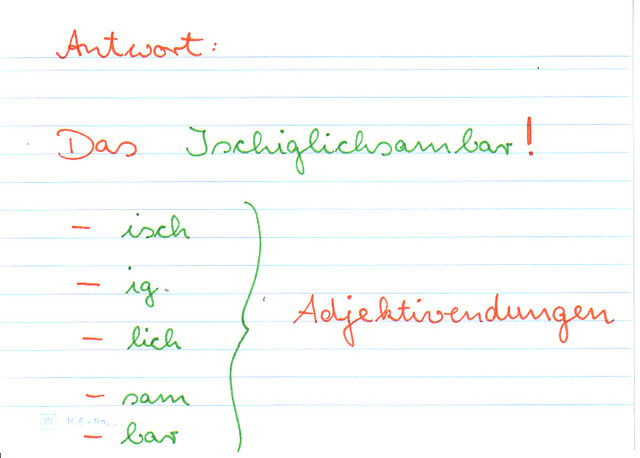 Antwort:
Das Ischiglichsambar!
- isch
- ig.
- lich
- sam
- bar
Adjektivendungen